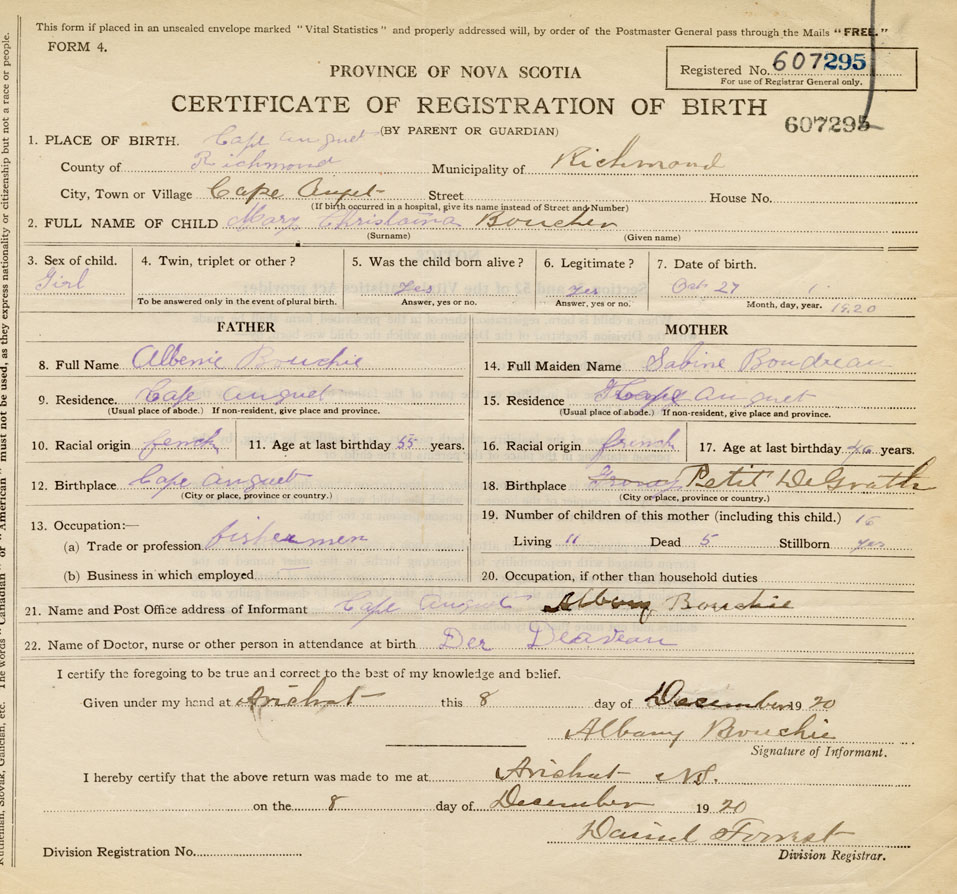 This form if placed in an unsealed envelope marked "Vital Statistics" and properly addressed will, by order of the Postmaster General pass through the Mails "FREE."
FORM 4.
Registered No. 607295
For use of Registrar General only.
PROVINCE OF NOVA SCOTIA
CERTIFICATE OF REGISTRATION OF BIRTH
607295
(BY PARENT OR GUARDIAN)
1. PLACE OF BIRTH. Cape Auguet
County of Richmond Municipality of Richmond
City, Town or Village Cape Auget Street House No.
(If birth occurred in a hospital, give its name instead of Street and Number)
2. FULL NAME OF CHILD Mary Christaina Boucher
(Surname) (Given name)
3. Sex of child. 4. Twin, triplet or other? 5. Was the child born alive? 6. Legitimate? 7. Date of birth.
Girl Yes yes Oct 27 1920
To be answered only in the event of plural birth. Answer, yes or no. Answer, yes or no. Month, day, year.
FATHER MOTHER
8. Full Name Albenie Bouchie 14. Full Maiden Name Sabine Boudreau
9. Residence. Cape auguet 15. Residence Cape Auguet
(Usual place of abode.) If non-resident, give place and province. (Usual place of abode.) If non-resident, give place and province.
10. Racial origin fench 11. Age at last birthday 55 years. 16. Racial origin french 17. Age at last birthday years.
12. Birthplace Cape auguet 18. Birthplace Petit DeGrath
(City or place, province or country.) (City or place, province or country.)
13. Occupation:— 19. Number of children of this mother (including this child.) 16
(a) Trade or profession fishermen Living 11 Dead 5 Stillborn yes
(b) Business in which employed 20. Occupation, if other than household duties
21. Name and Post Office address of Informant Cape Auguet Albany Bouchie
22. Name of Doctor, nurse or other person in attendance at birth Der Deaveau
I certify the foregoing to be true and correct to the best of my knowledge and belief.
Given under my hand at Arichat this 8 day of December 1920
Albany Bouchie
Signature of Informant.
I hereby certify that the above return was made to me at Arichat N.S.
on the 8 day of December 1920
Daniel Forrest
Division Registrar.
Division Registration No.